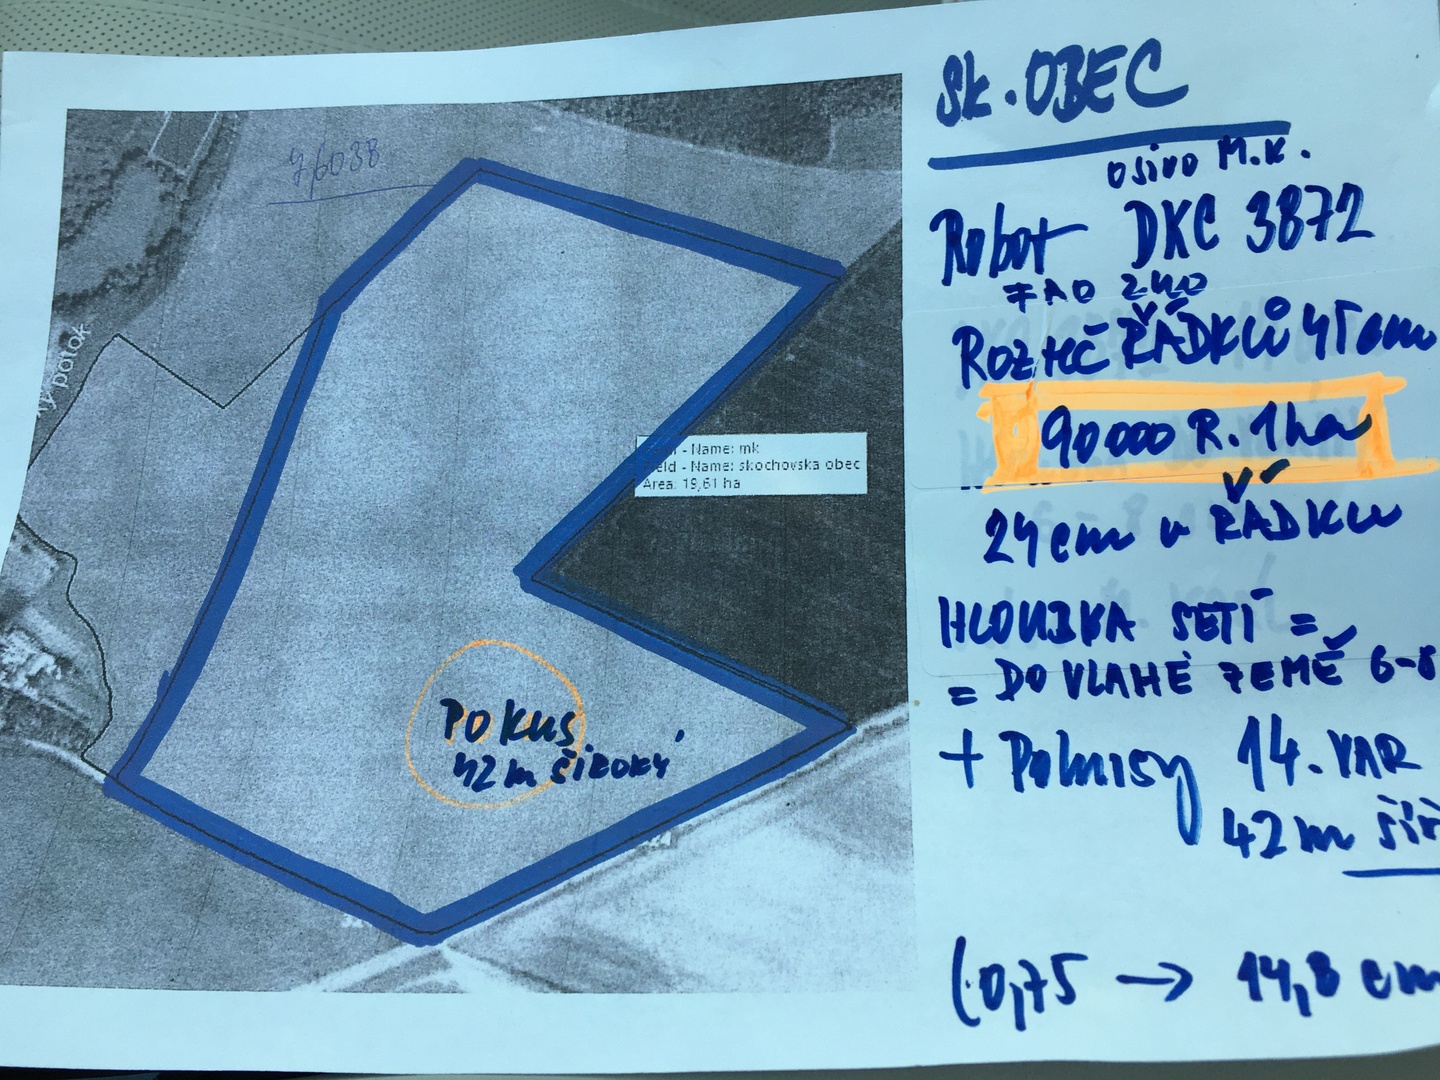 SK. OBEC
osivo M.K.
Robot DKC 3872
FAO 240
ROZTEČ ŘÁDKŮ 45 cm
90 000 R. 1 ha
24 cm v ŘÁDKU
HLOUBKA SETÍ =
= DO VLAHÉ ZEMĚ 6-8
+ Pokusy 14. VAR
42 m šíř
(0,75 → 14,8 cm
potok
- Name: mk
eld - Name: skochovska obec
Area: 19,61 ha
POKUS
42 m široký